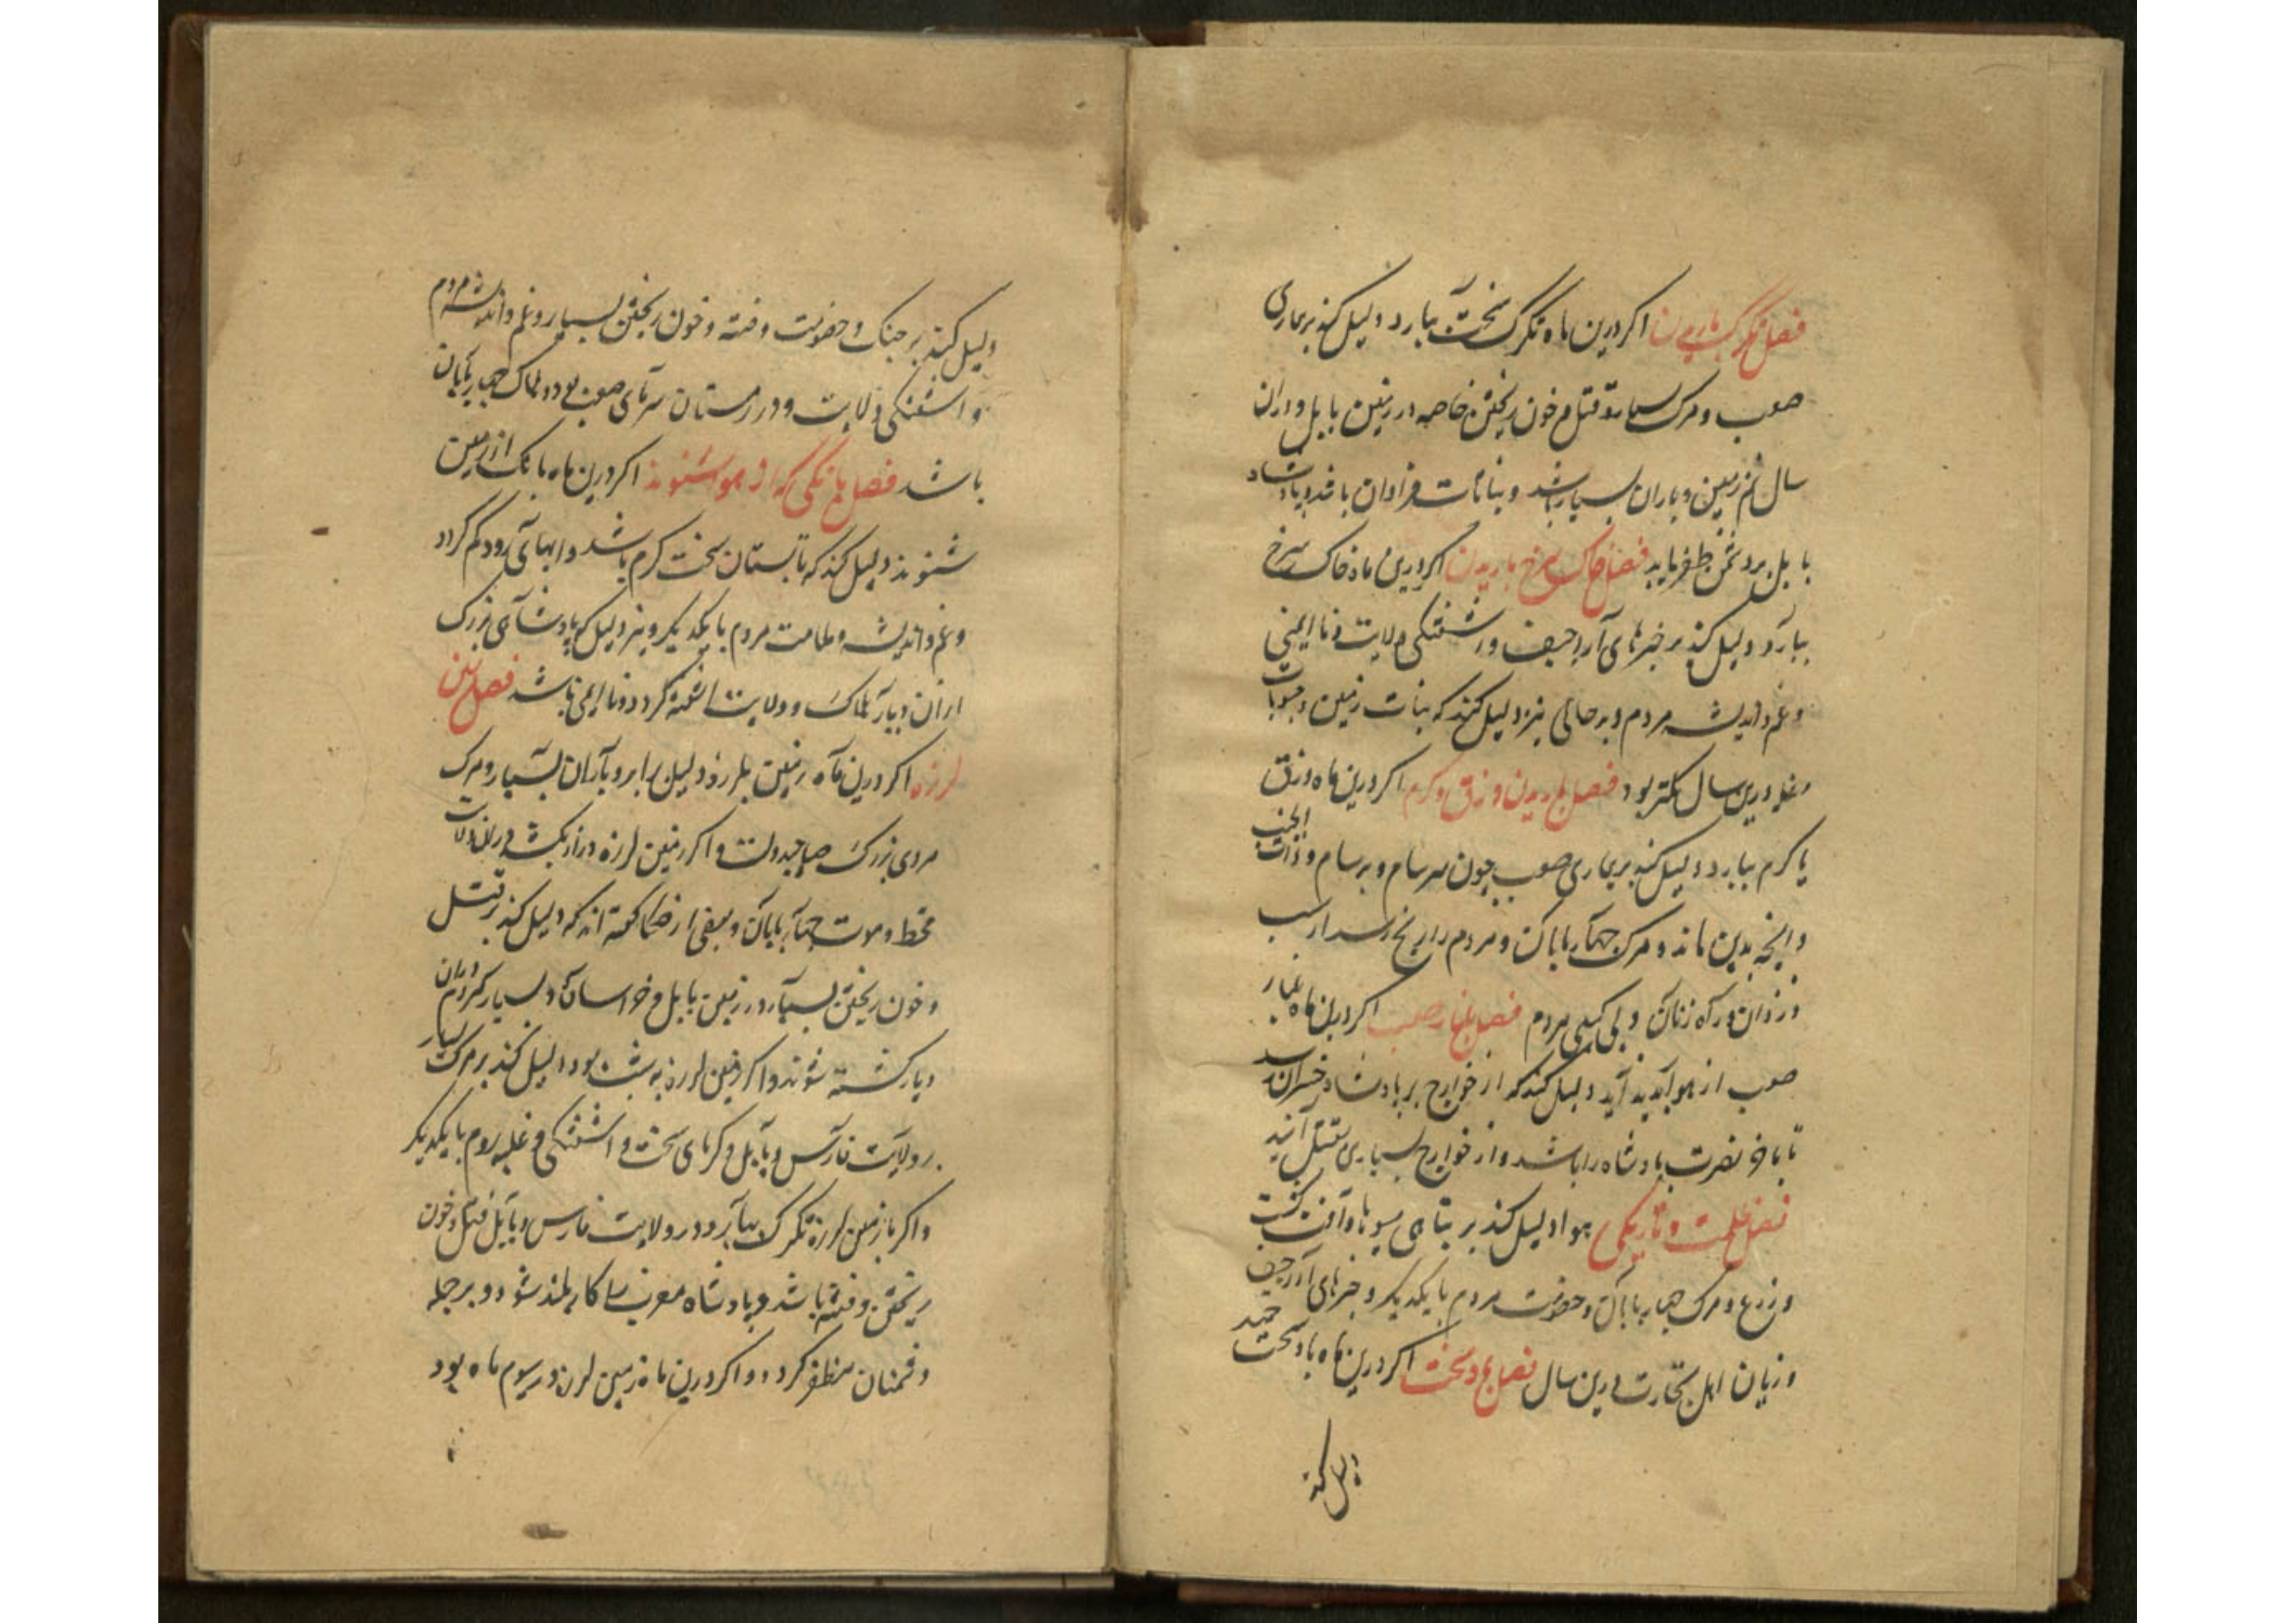 فصل تگرگ باریدن اگر درین ماه تگرگ سخت ببارد دلیل کند بر بیماری
صعب و مرگ بسیار و قتل و خون ریختن خاصه در زمین بابل و دران
سال نم زمین و باران بسیار باشد و نباتات فراوان باشد و پادشاه
بابل بر دشمن ظفر یابد فصل خاک سرخ باریدن اگر درین ماه خاک سرخ
ببارد دلیل کند بر خبرهای آراجیف و اشفتگی ولایت و نا ایمنی
و غم و اندیشه مردم و بر حالی نیز دلیل کند که نبات زمین و حبوبات
غله درین سال کمتر بود فصل باریدن وزق و کرم اگر درین ماه وزق
یا کرم ببارد دلیل کند بر بیماری صعب چون سرسام و برسام و ذات الجنب
و آنچه بدین ماند و مرگ چهارپایان و مردم را رنج رسد از سبب
دزدان و راه زنان و مردم فصل غبار صعب اگر درین ماه غبار
صعب از هوا پدید آید دلیل کند که از خوارج بر پادشاه خسران رسد
تا نصرت پادشاه را باشد و از خوارج بسیاری بقتل آیند
فصل ظلمت و تاریکی هوا دلیل کند بر تباهی میوها و آفت کشت
و زرع و مرگ چهارپایان و خصومت مردم با یکدیگر و خبرهای آراجیف
و زیان اهل تجارت درین سال فصل باد سخت اگر درین ماه باد سخت جهد
دلیل کند
دلیل کند بر جنگ و خصومت و فتنه و خون ریختن بسیار و غم و اندیشه مردم
و اشفتگی ولایت و در زمستان سرمای صعب بود و هلاک چهارپایان
باشد فصل بانگی که از هوا شنوند اگر درین ماه بانگ از زمین
شنوند دلیل کند که تابستان سخت گرم باشد و ابهای رود کم گردد
و غم و اندیشه و ملامت مردم با یکدیگر و نیز دلیل که پادشاهی بزرگ
ازان دیار هلاک و ولایت اشفته گردد و نا ایمنی باشد فصل زمین
لرزه اگر درین ماه زمین بلرزد دلیل بر ابر و باران بسیار و مرگ
مردی بزرگ صاحبدولت و اگر زمین لرزه دراز بکشد دران ولایت
قحط و موت چهارپایان و بعضی از حکما گفته اند که دلیل کند بر قتل
و خون ریختن بسیار در زمین بابل و خراسان و بسیار مردم دران
دیار کشته شوند و اگر زمین لرزه به شب بود دلیل کند بر مرگ بسیار
در ولایت فارس و بابل و گرمای سخت و اشفتگی و غلبه روم با یکدیگر
و اگر با زمین لرزه تگرگ ببارد در ولایت فارس و بابل قتل و خون
ریختن و فتنه باشد و پادشاه مغرب را کار بلند شود و بر جمله
دشمنان مظفر گردد و اگر درین ماه زمین لرزد و سیوم ماه بود